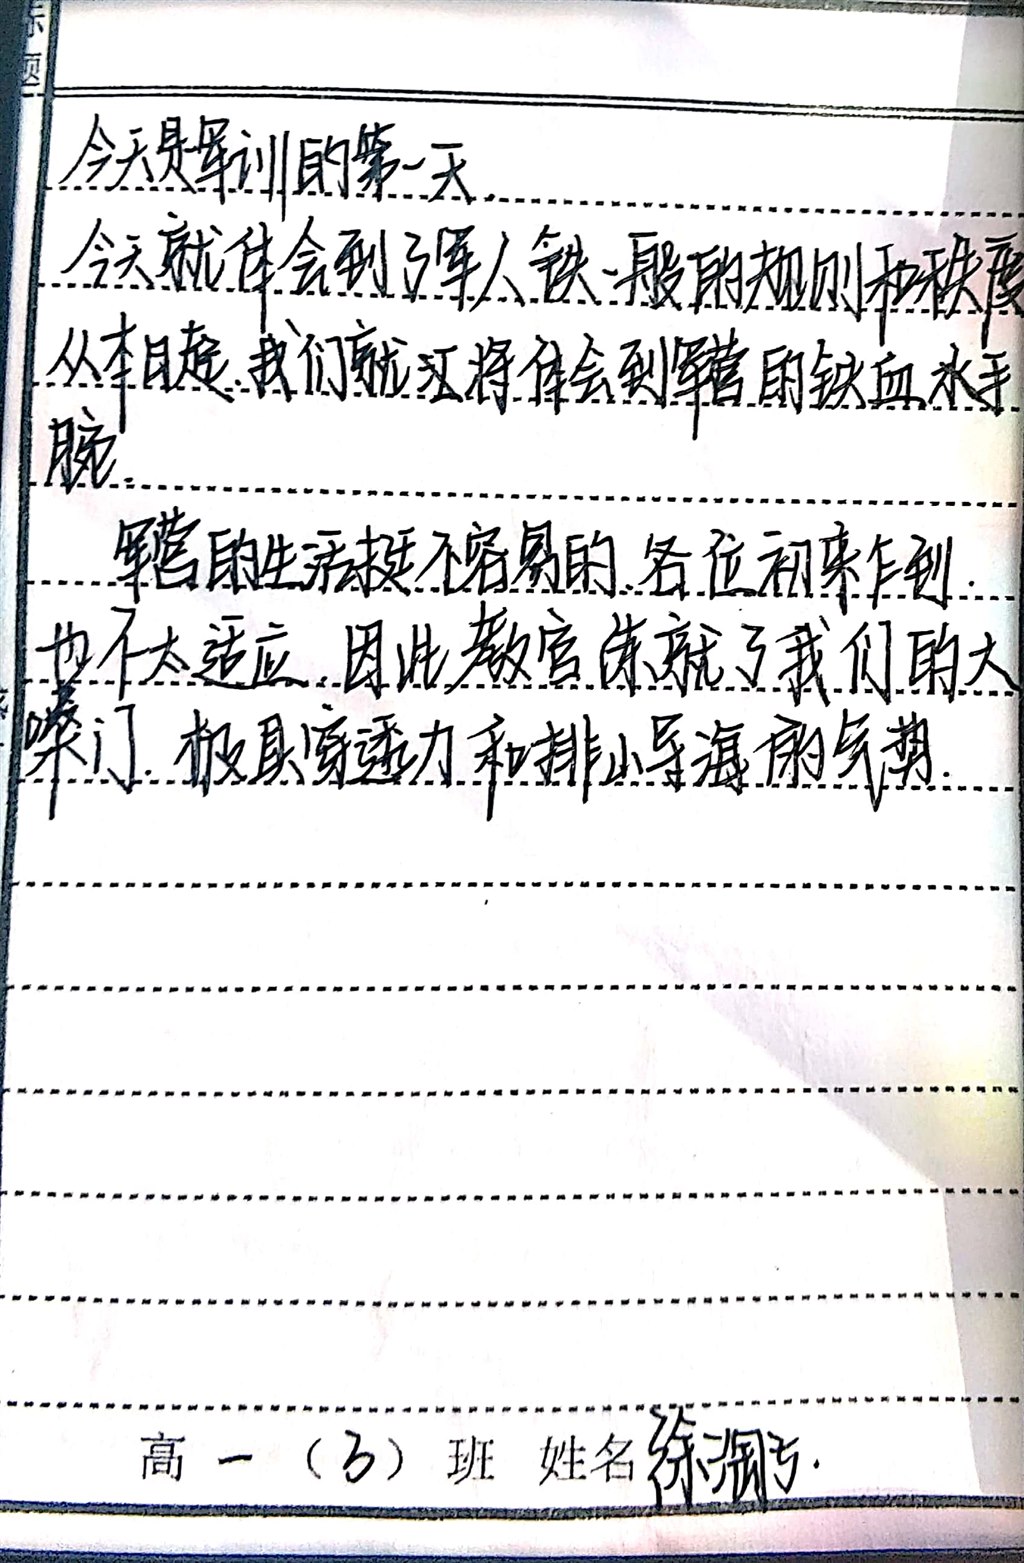 题
今天是军训的第一天.
今天就体会到了军人铁一般的规则和秩度
从本日起.我们就江将体会到军营的铁血水手
腕.
军营的生活挺不容易的.各位初来乍到.
也不太适应.因此教官练就了我们的大
嗓门.极具穿透力和排山导海般的气势.
高一(3)班 姓名徐